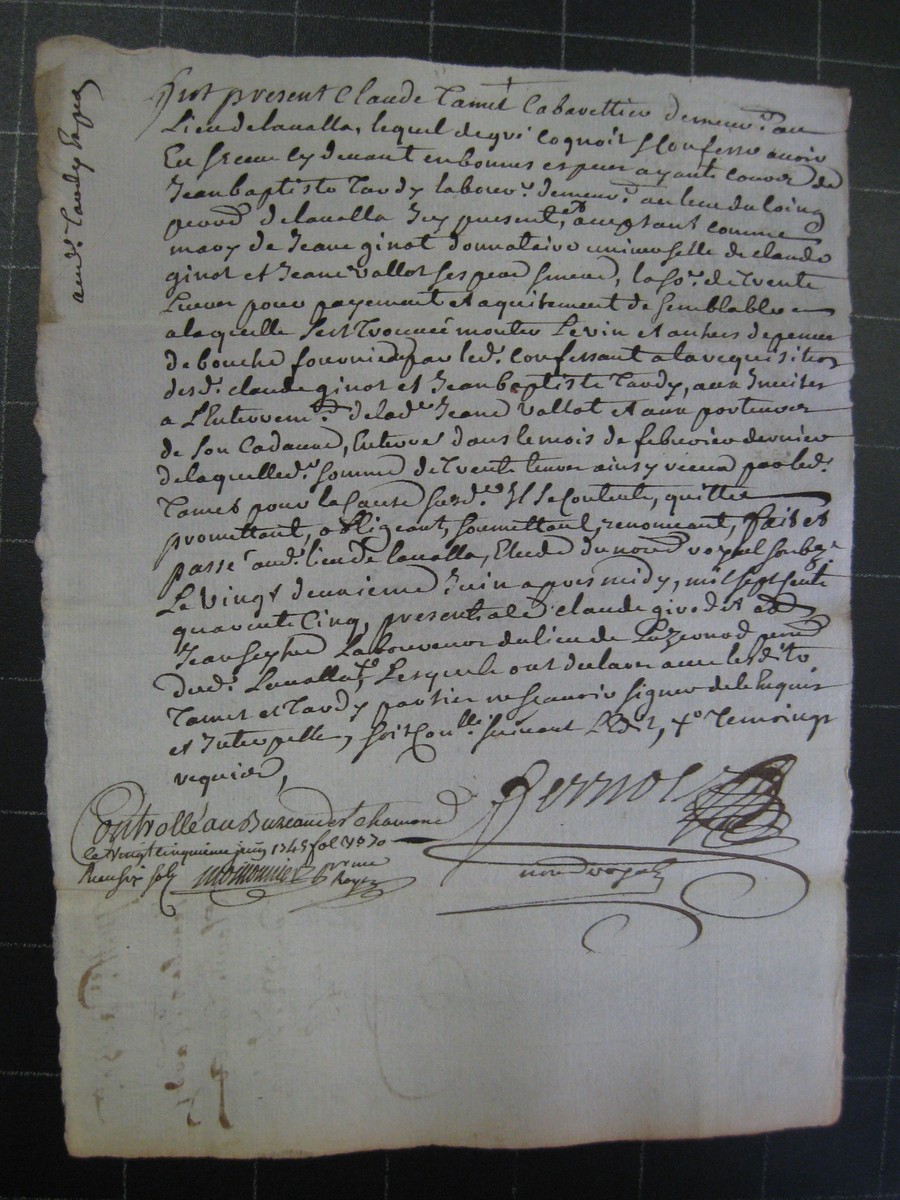 aud. Tardy
fust present Claude Tamet Cabarettier demeur. au
Lieu de lavalla, lequel de gré cognoit & Confesse avoir
Eu & receu cy devant en bonnes especes ayants cours de
Jean baptiste Tardy labour. demeur. au lieu du Coing
parroisse de lavalla Icy present, et aceptant comme
mary de Jeanne ginot donnataire universelle de claude
ginot et Jeanne Vallot ses pere & mere, la so. de Trente
Livres pour payement et aquitement de semblable
a laquelle s'est Trouvée monter Le vin et autres depences
de bouche fournies par led. Confessant a la requisition
desd. claude ginot et Jean baptiste Tardy, aux Invites
a L'Enterrem. de lad. Jeanne Vallot et aux porteurs
de son Cadavre, Enterrée dans le mois de febvrier dernier
de laquelle d. somme de Trente livres ainsy receue par led.
Tamet pour la Cause susd. Il se Contente, quitte
promettant, obligeant, soumettant, renonçant, fait et
passé aud. lieu de lavalla, Etude du no.re royal soubz.
Le vingt deuxieme Juin apres midy, mil sept cents
quarente Cinq, presents a ce claude girodet et
Jean seyve Laboureurs du lieu de Luzernod
dud. Lavalla, Lesquels ont declaré avec lesdits
Tamet et Tardy parties ne scavoir signer de ce Enquis
et Interpellés, soit Con.llé suivant L'Edit, Temoings
requis,
Controllé au Bureau de st chamond
le vingt cinquieme juin 1745 fol
Receu six sols
no.re royal